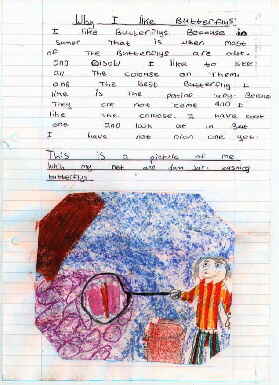 Why I like Butterflys
I like Butterflys Because in
Sumer That is when most
of The Butterflys are out.
and I like to see
all The colouse on Them
and The Best Butterfly I
like is The Because
They are not come and I
like The colouse. I have got
one and look at in Bed
I have not one yet.
This is a picture of me
with my net and jam jar
butterflys